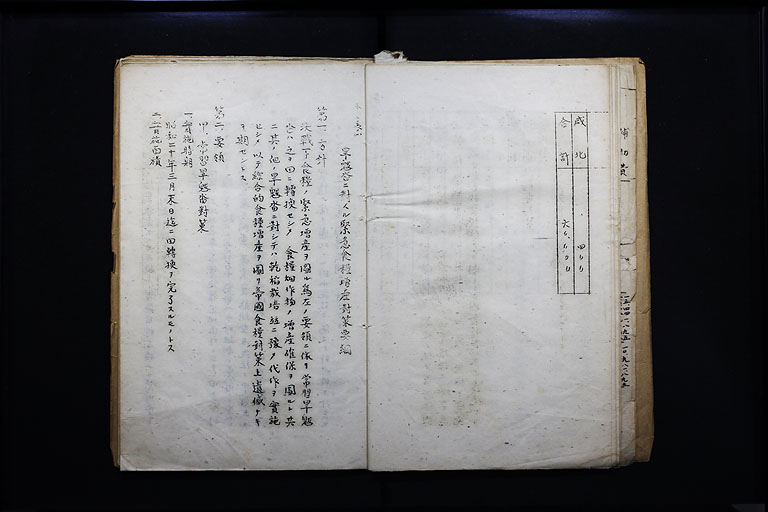 咸北 四〇〇
合計
旱魃畓ニ対スル緊急食糧増産対策要綱
第一、方針
決戦下食糧ノ緊急増産ヲ図ル為左ノ要領ニ依リ常習旱魃
畓ハ之ヲ田ニ轉換セシメ食糧畑作物ノ増産確保ヲ図ルト共
ニ其ノ他ノ旱魃畓ニ對シテハ乾稲栽培並ニ強力代作ヲ實施
セシメ以テ綜合的食糧増産ヲ図リ帝國食糧対策上遺憾ナキ
ヲ期セントス
第二、要領
甲、常習旱魃畓対策
一、實施時期
昭和二十年三月末日迄ニ田轉換ヲ完了スルモノトス
二、實施面積